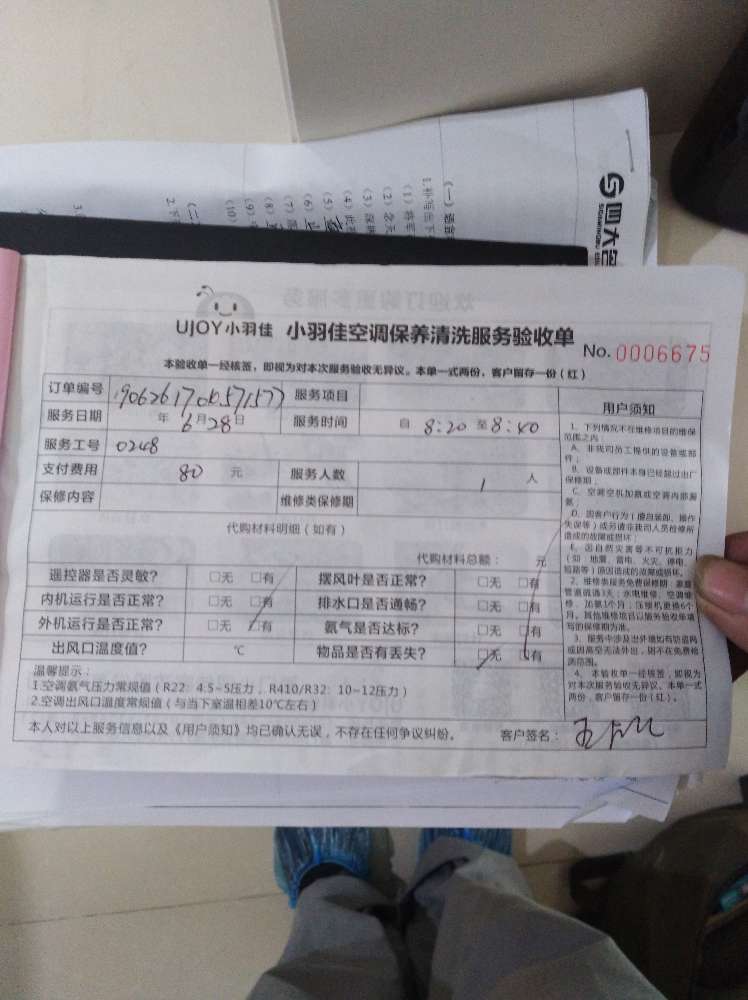 (一)
1.补写出下
(1)
(2)
(3)
(4)
(5)
(6)
(7)
(8)
(9)
(10)
四大
UJOY小羽佳 小羽佳空调保养清洗服务验收单
No. 0006675
本验收单一经核签，即视为对本次服务验收无异议。本单一式两份，客户留存一份（红）
订单编号 服务项目
服务日期 年 6月28日 服务时间 自 8:20 至 8:40
服务工号 0248
支付费用 80 元 服务人数 1 人
保修内容 维修类保修期
代购材料明细（如有）
代购材料总额： 元
遥控器是否灵敏？ □无 □有 摆风叶是否正常？ □无 □有
内机运行是否正常？ □无 □有 排水口是否通畅？ □无 □有
外机运行是否正常？ □无 □有 氨气是否达标？ □无 □有
出风口温度值？ ℃ 物品是否有丢失？ □无 □有
温馨提示：
1.空调氨气压力常规值（R22：4.5~5压力，R410/R32：10~12压力）
2.空调出风口温度常规值（与当下室温相差10℃左右）
本人对以上服务信息以及《用户须知》均已确认无误，不存在任何争议纠纷。 客户签名：
用户须知
1、下列情况不在维修项目的维保
范围之内：
A、非我司员工提供的设备或部
件；
B、设备或部件本身已经超过出厂
保修期；
C、空调空机加氨或空调内部漏
氨；
D、因客户行为（擅自装卸、操作
失误等）或另请非我司人员检修所
造成的故障或损坏；
E、因自然灾害等不可抗拒力
（如：地震、雷电、火灾、停电、
短路等）原因造成的故障或损坏。
2、维修类服务免费保修期：家庭
管道疏通3天；水电维修、空调维
修、加氨1个月；压缩机更换6个
月。其他维修项目以服务验收单填
写的保修期为准。
3、服务中涉及出外墙如有防盗网
或因高空无法外出，则不在免费检
测范围。
4、本验收单一经核签，即视为
对本次服务验收无异议。本单一式
两份，客户留存一份（红）。